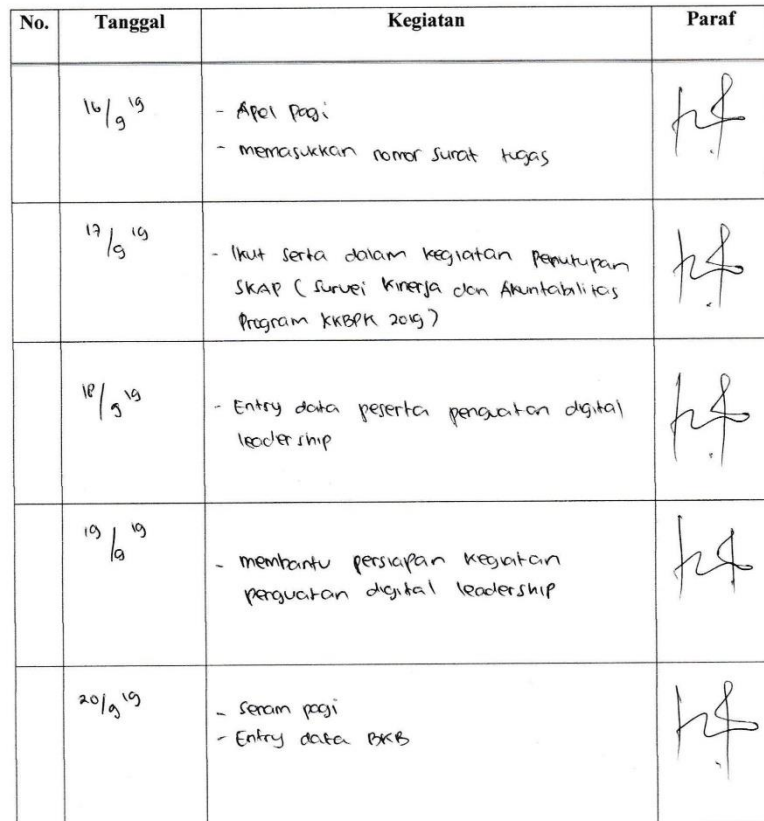 No. Tanggal Kegiatan Paraf
16/9 19 - Apel Pagi
- memasukkan nomor surat tugas
17/9 19 - Ikut serta dalam kegiatan penutupan
SKAP (Survei Kinerja dan Akuntabilitas
Program KKBPK 2019)
18/9 19 - Entry data peserta penguatan digital
leadership
19/9 19 - membantu persiapan kegiatan
penguatan digital leadership
20/9 19 - Senam pagi
- Entry data BKB